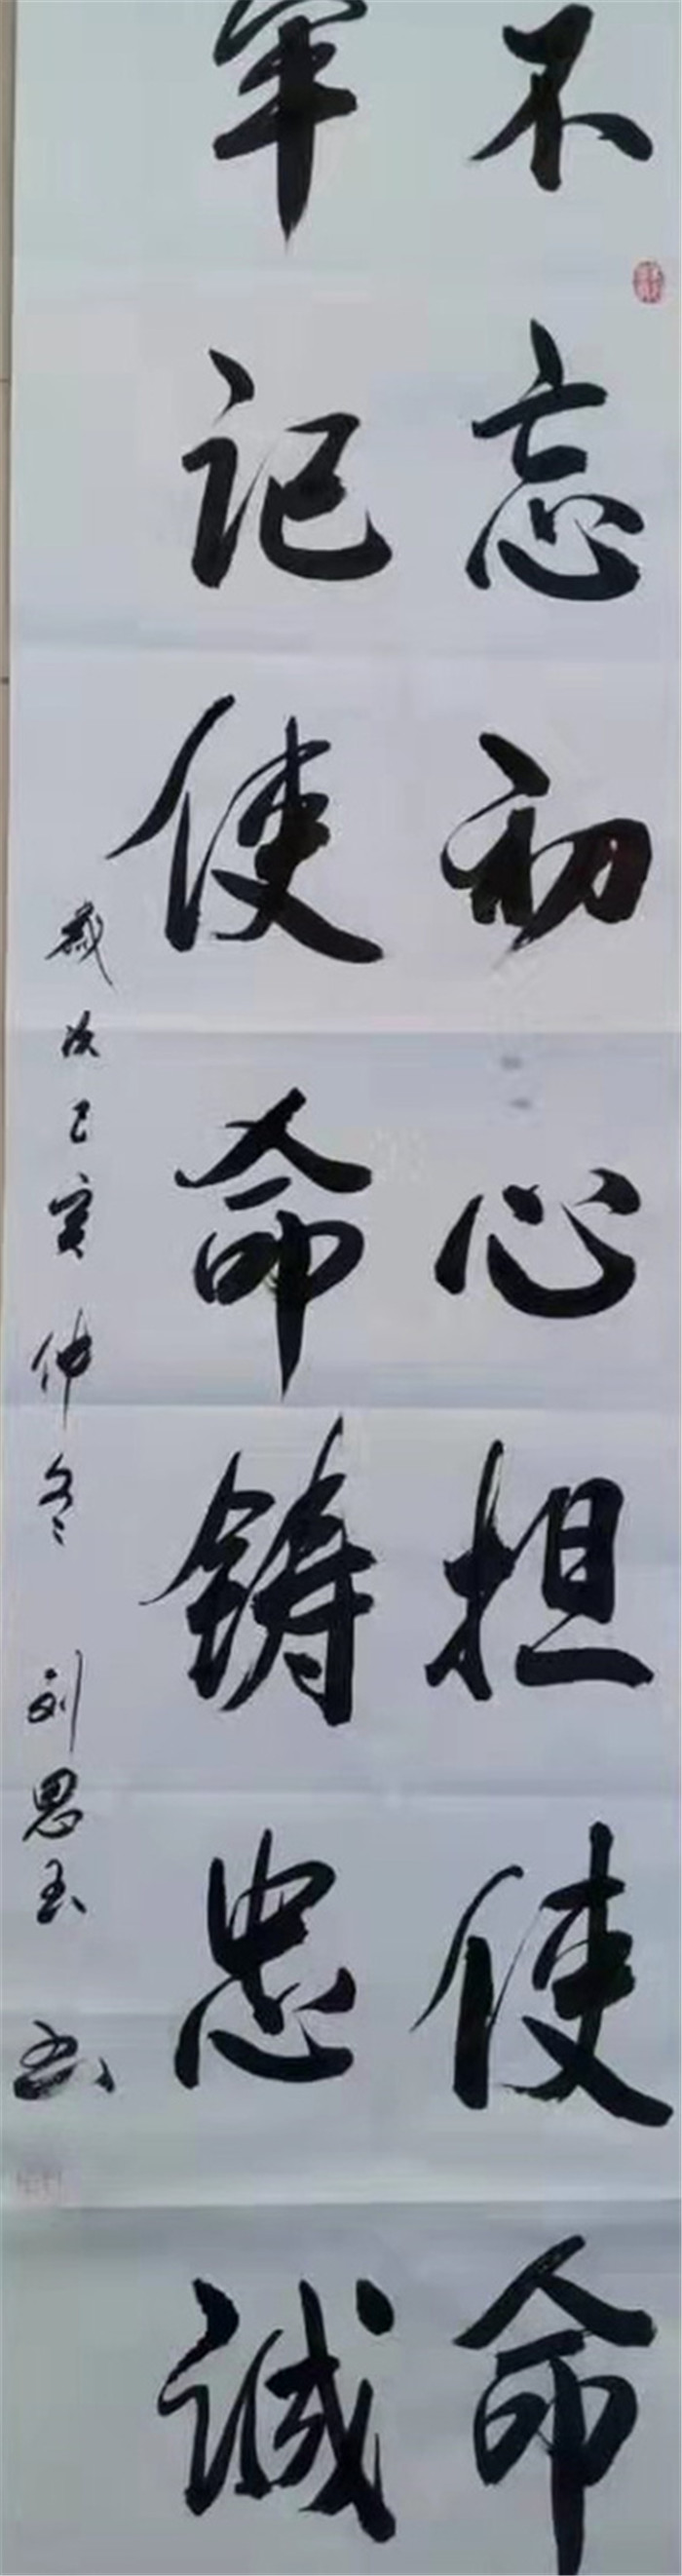 不忘初心担使命
牢记使命铸忠诚
岁次己亥仲冬 刘思玉书